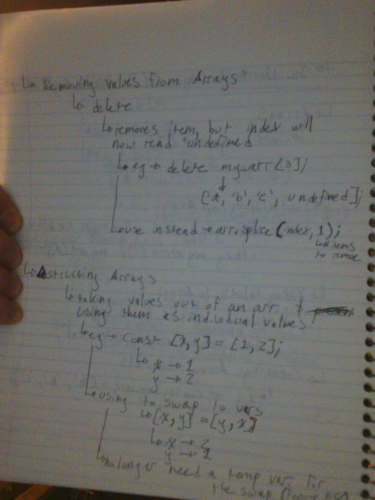 ↳ Removing values from Arrays
↳ delete
↳ removes item, but index will
now read "undefined"
↳ eg → delete my_arr[3];
↓
['a', 'b', 'c', undefined];
↳ use instead → arr.splice(index, 1);
↳ items
to remove
↳ Destructing Arrays
↳ taking values out of an arr. &
using them as individual values
↳ eg → const [x, y] = [1, 2];
↳ x → 1
y → 2
↳ using to swap to vars
↳ [x, y] = [y, x]
↳ x → 2
y → 1
↳ no longer need a temp var. for
the swap